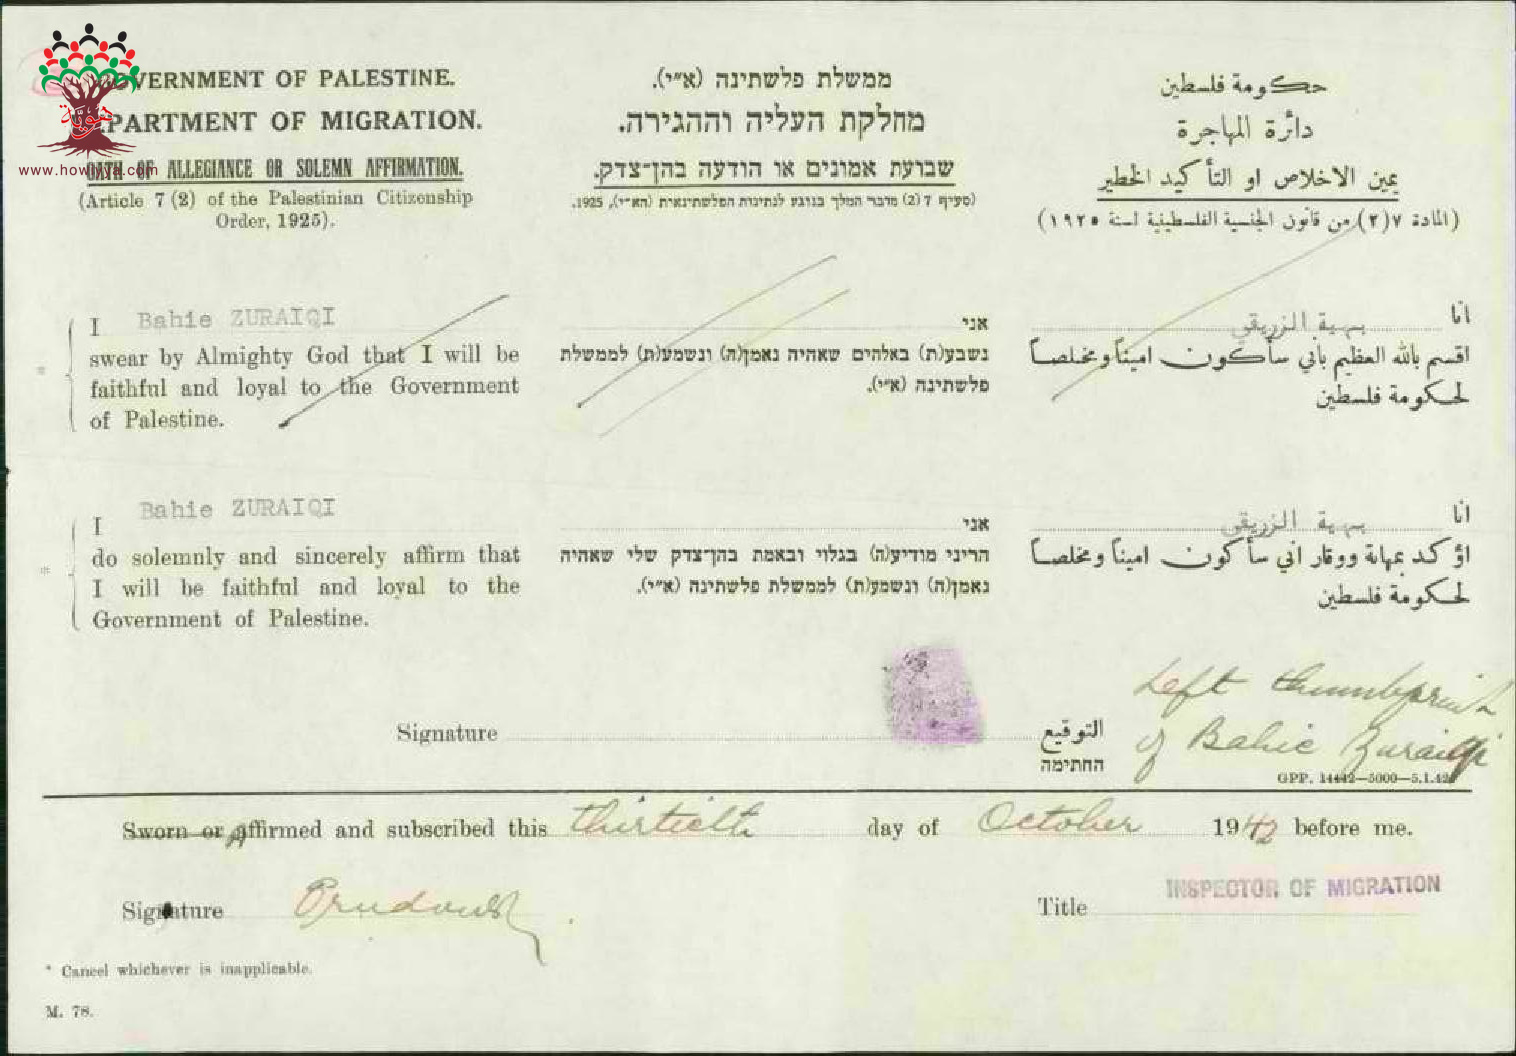 هوية
www.howiyya.com
GOVERNMENT OF PALESTINE.
DEPARTMENT OF MIGRATION.
OATH OF ALLEGIANCE OR SOLEMN AFFIRMATION.
(Article 7 (2) of the Palestinian Citizenship
Order, 1925).
ממשלת פלשתינה (א״י).
מחלקת העליה וההגירה.
שבועת אמונים או הודעה בהן־צדק.
(סעיף 7 (2) מדבר המלך בנוגע לנתינות הפלשתינאית (הא״י), 1925.
حكومة فلسطين
دائرة المهاجرة
يمين الاخلاص او التأكيد الخطير
(المادة ٧(٢) من قانون الجنسية الفلسطينية لسنة ١٩٢٥)
I Bahie ZURAIQI
* swear by Almighty God that I will be
faithful and loyal to the Government
of Palestine.
אני
נשבע(ת) באלהים שאהיה נאמן(ה) ונשמע(ת) לממשלת
פלשתינה (א״י).
انا بهية الزريقي
اقسم بالله العظيم بأني سأكون اميناً ومخلصاً
لحكومة فلسطين
I Bahie ZURAIQI
* do solemnly and sincerely affirm that
I will be faithful and loyal to the
Government of Palestine.
אני
הריני מודיע(ה) בגלוי ובאמת בהן־צדק שלי שאהיה
נאמן(ה) ונשמע(ת) לממשלת פלשתינה (א״י).
انا بهية الزريقي
اؤكد بمهابة ووقار اني سأكون اميناً ومخلصاً
لحكومة فلسطين
Signature
التوقيع
החתימה
Left thumbprint
of Bahie Zuraiqi
GPP. 14442—5000—5.1.42
Sworn or Affirmed and subscribed this thirtieth day of October 1942 before me.
Signature
Title INSPECTOR OF MIGRATION
* Cancel whichever is inapplicable.
M. 78.